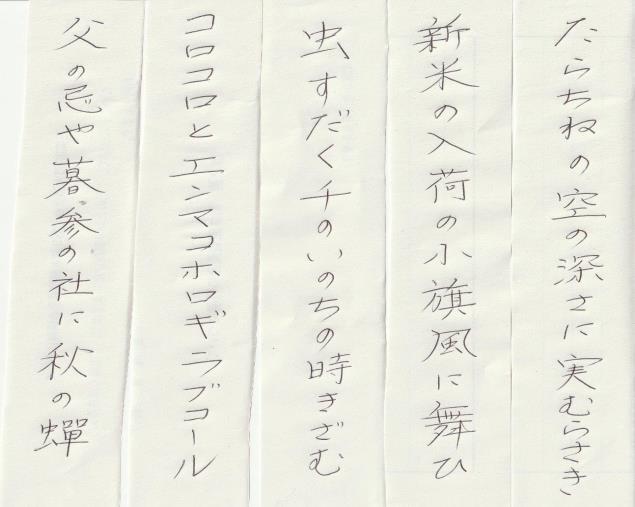 たらちねの空の深さに実むらさき
新米の入荷の小旗風に舞ひ
虫すだく千のいのちの時きざむ
コロコロとエンマコホロギラブコール
父の忌や暮参の社に秋の蟬